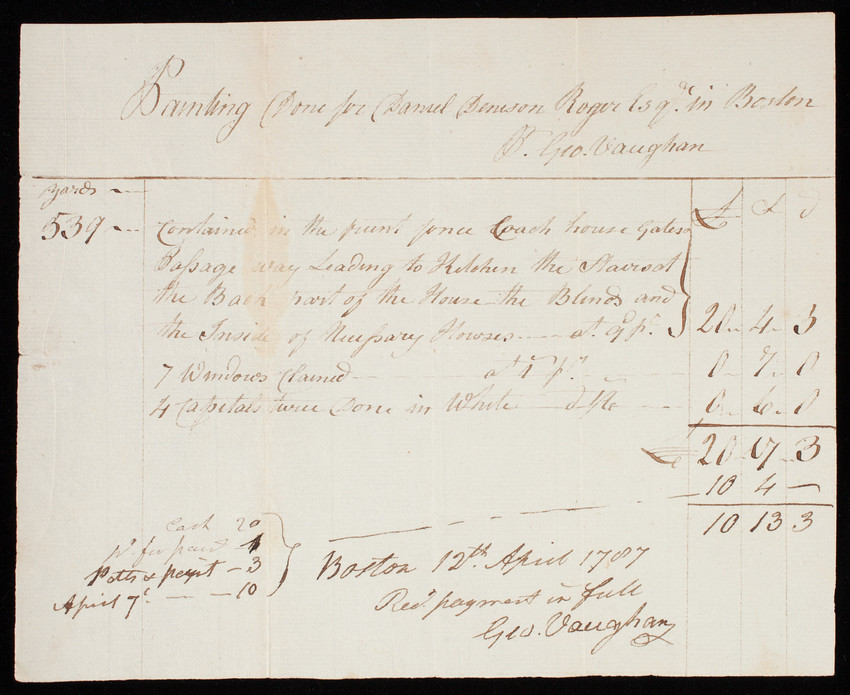 Painting Done for Daniel Denison Roger Esqr. in Boston
Pr. Geo. Vaughan
Yards
539 Contained in the frunt fence Coach house Gates
Passage way Leading to Kitchen the Stairs at
the Back part of the House the Blinds and
the Inside of Necessary Howses at 9d pr. 20 4 3
£ S d
7 Windows Clained at 1/ pr. 0 7 0
4 Capitals twice Done in White 1/6 0 6 0
£ 20 17 3
10 4
10 13 3
Cash 20
pd. for paid 1
Potts & paynt 3
April 7t. 10
Boston 12th. April 1787
Recd. payment in full
Geo. Vaughan